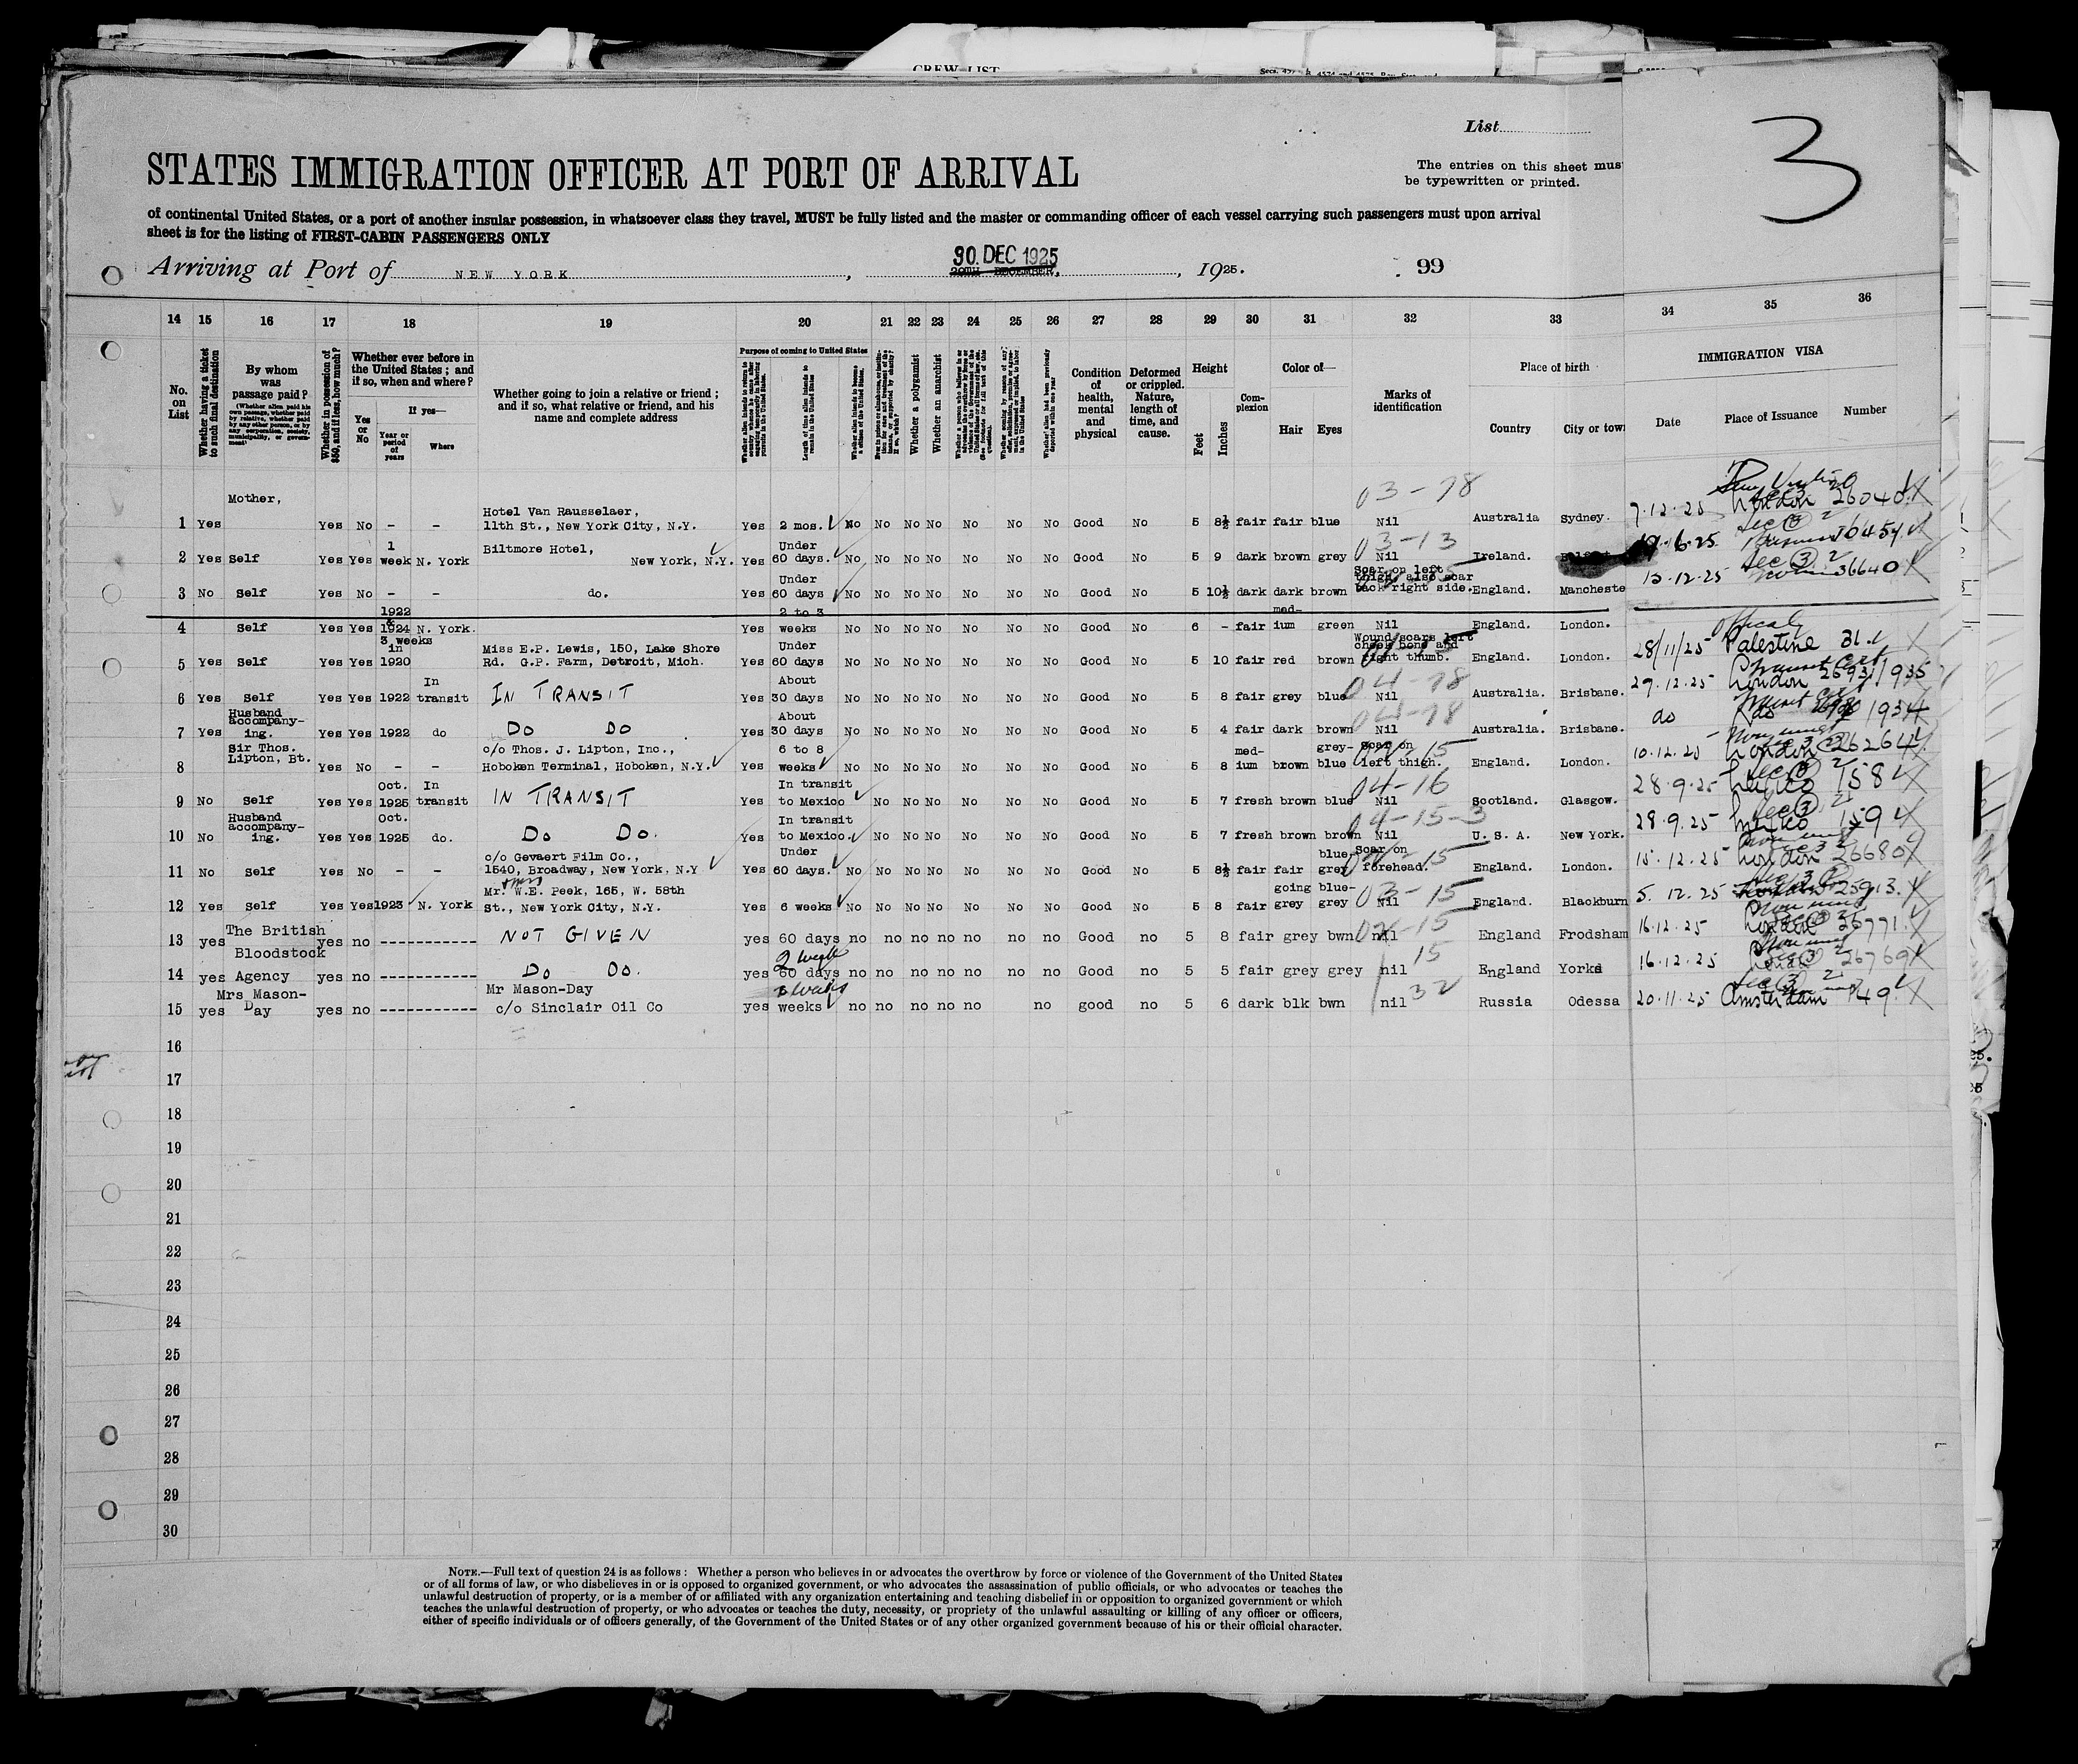 CREW LIST
List
3
STATES IMMIGRATION OFFICER AT PORT OF ARRIVAL
The entries on this sheet mus
be typewritten or printed.
of continental United States, or a port of another insular possession, in whatsoever class they travel, MUST be fully listed and the master or commanding officer of each vessel carrying such passengers must upon arrival
sheet is for the listing of FIRST-CABIN PASSENGERS ONLY
Arriving at Port of NEW YORK, 30. DEC 1925 20TH DECEMBER, 1925. 99
14 15 16 17 18 19 20 21 22 23 24 25 26 27 28 29 30 31 32 33 34 35 36
No. on List
Whether having a ticket to such final destination
By whom was passage paid?
(Whether alien paid his own passage, whether paid by relative, whether paid by any other person, or by any corporation, society, municipality, or government)
Whether in possession of $50, and if less, how much?
Whether ever before in the United States; and if so, when and where?
Yes or No
If yes—
Year or period of years
Where
Whether going to join a relative or friend; and if so, what relative or friend, and his name and complete address
Purpose of coming to United States
Length of time alien intends to remain in the United States
Whether a polygamist
Whether an anarchist
Condition of health, mental and physical
Deformed or crippled. Nature, length of time, and cause.
Height
Feet Inches
Complexion
Color of—
Hair Eyes
Marks of identification
Place of birth
Country City or town
IMMIGRATION VISA
Date Place of Issuance Number
03-78
1 Yes Mother, Yes No - - Hotel Van Rausselaer, 11th St., New York City, N.Y. Yes 2 mos. No No No No No No No Good No 5 8½ fair fair blue Nil Australia Sydney. 7.12.25 London 26040
03-13
2 Yes Self Yes Yes 1 week N. York Biltmore Hotel, New York, N.Y. Yes Under 60 days. No No No No No No No Good No 5 9 dark brown grey Nil Ireland.
3 No Self Yes No - - do. Yes Under 60 days No No No No No No No Good No 5 10½ dark dark brown Scar on left thigh, also scar back right side. England. Mancheste 36640
4 Self Yes Yes 1922 & 1924 N. York. Yes 2 to 3 weeks No No No No No No No Good No 6 - fair med-ium green Nil England. London.
5 Yes Self Yes Yes 3 weeks in 1920 Miss E.P. Lewis, 150, Lake Shore Rd. G.P. Farm, Detroit, Mich. Yes Under 60 days No No No No No No No Good No 5 10 fair red brown Wound scars left cheek bone and right thumb. England. London. 28/11/25 Official Palestine 31
04-78
6 Yes Self Yes Yes 1922 In transit IN TRANSIT Yes About 30 days No No No No No No No Good No 5 8 fair grey blue Nil Australia. Brisbane. 29.12.25 London 1935
04-78
7 Yes Husband accompany-ing. Yes Yes 1922 do DO DO Yes About 30 days No No No No No No No Good No 5 4 fair dark brown Nil Australia. Brisbane. do do 1934
8 Sir Thos. Lipton, Bt. Yes No - - c/o Thos. J. Lipton, Inc., Hoboken Terminal, Hoboken, N.Y. Yes 6 to 8 weeks No No No No No No No Good No 5 8 med-ium brown grey-blue Scar on left thigh. England. London. 10.12.25 London 26264
04-16
9 No Self Yes Yes Oct. 1925 In transit IN TRANSIT Yes In transit to Mexico No No No No No No No Good No 5 7 fresh brown blue Nil Scotland. Glasgow. 28.9.25 Mexico 158
04-15-3
10 No Husband accompany-ing. Yes Yes Oct. 1925 do. DO DO. Yes In transit to Mexico. No No No No No No No Good No 5 7 fresh brown brown Nil U. S. A. New York. 28.9.25 Mexico 159
11 No Self Yes No - - c/o Gevaert Film Co., 1540, Broadway, New York, N.Y Yes Under 60 days. No No No No No No No Good No 5 8½ fair fair blue-grey Scar on forehead. England. London. 15.12.25 London 26680
03-15
12 Yes Self Yes Yes 1923 N. York Mr. W.E. Peek, 165, W. 58th St., New York City, N.Y. Yes 6 weeks No No No No No No No Good No 5 8 fair going grey blue-grey Nil England. Blackburn 5.12.25 25913.
13 yes The British yes no ----------- NOT GIVEN yes 60 days no no no no no no no Good no 5 8 fair grey bwn nil England Frodsham 16.12.25 London 26771
Bloodstock
14 yes Agency yes no ----------- DO DO. yes 60 days 2 weeks no no no no no no no Good no 5 5 fair grey grey nil 15 England Yorks 16.12.25 London 26769
15 yes Mrs Mason-Day yes no ----------- Mr Mason-Day c/o Sinclair Oil Co yes weeks no no no no no no good no 5 6 dark blk bwn nil 32 Russia Odessa 20.11.25 Amsterdam 149
16
17
18
19
20
21
22
23
24
25
26
27
28
29
30
NOTE.—Full text of question 24 is as follows: Whether a person who believes in or advocates the overthrow by force or violence of the Government of the United States
or of all forms of law, or who disbelieves in or is opposed to organized government, or who advocates the assassination of public officials, or who advocates or teaches the
unlawful destruction of property, or is a member of or affiliated with any organization entertaining and teaching disbelief in or opposition to organized government or which
teaches the unlawful destruction of property, or who advocates or teaches the duty, necessity, or propriety of the unlawful assaulting or killing of any officer or officers,
either of specific individuals or of officers generally, of the Government of the United States or of any other organized government because of his or their official character.